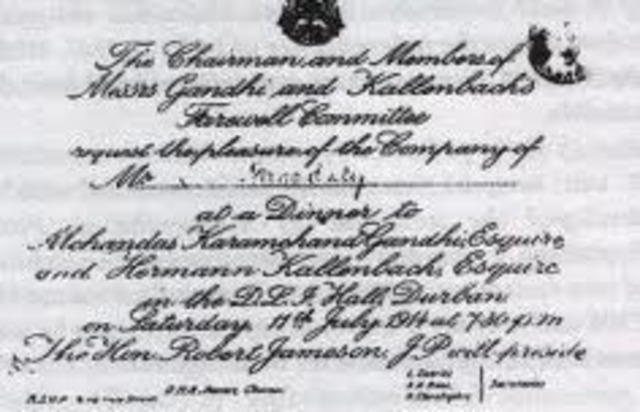 The Chairman and Members of
Messrs Gandhi and Kallenbach's
Farewell Committee
request the pleasure of the Company of
Mr
at a Dinner to
Mohandas Karamchand Gandhi, Esquire
and Hermann Kallenbach, Esquire
in the D.L.I. Hall, Durban
on Saturday, 11th July, 1914 at 7.30 p.m
The Hon. Robert Jameson, J.P will preside
R.S.V.P.
Secretaries